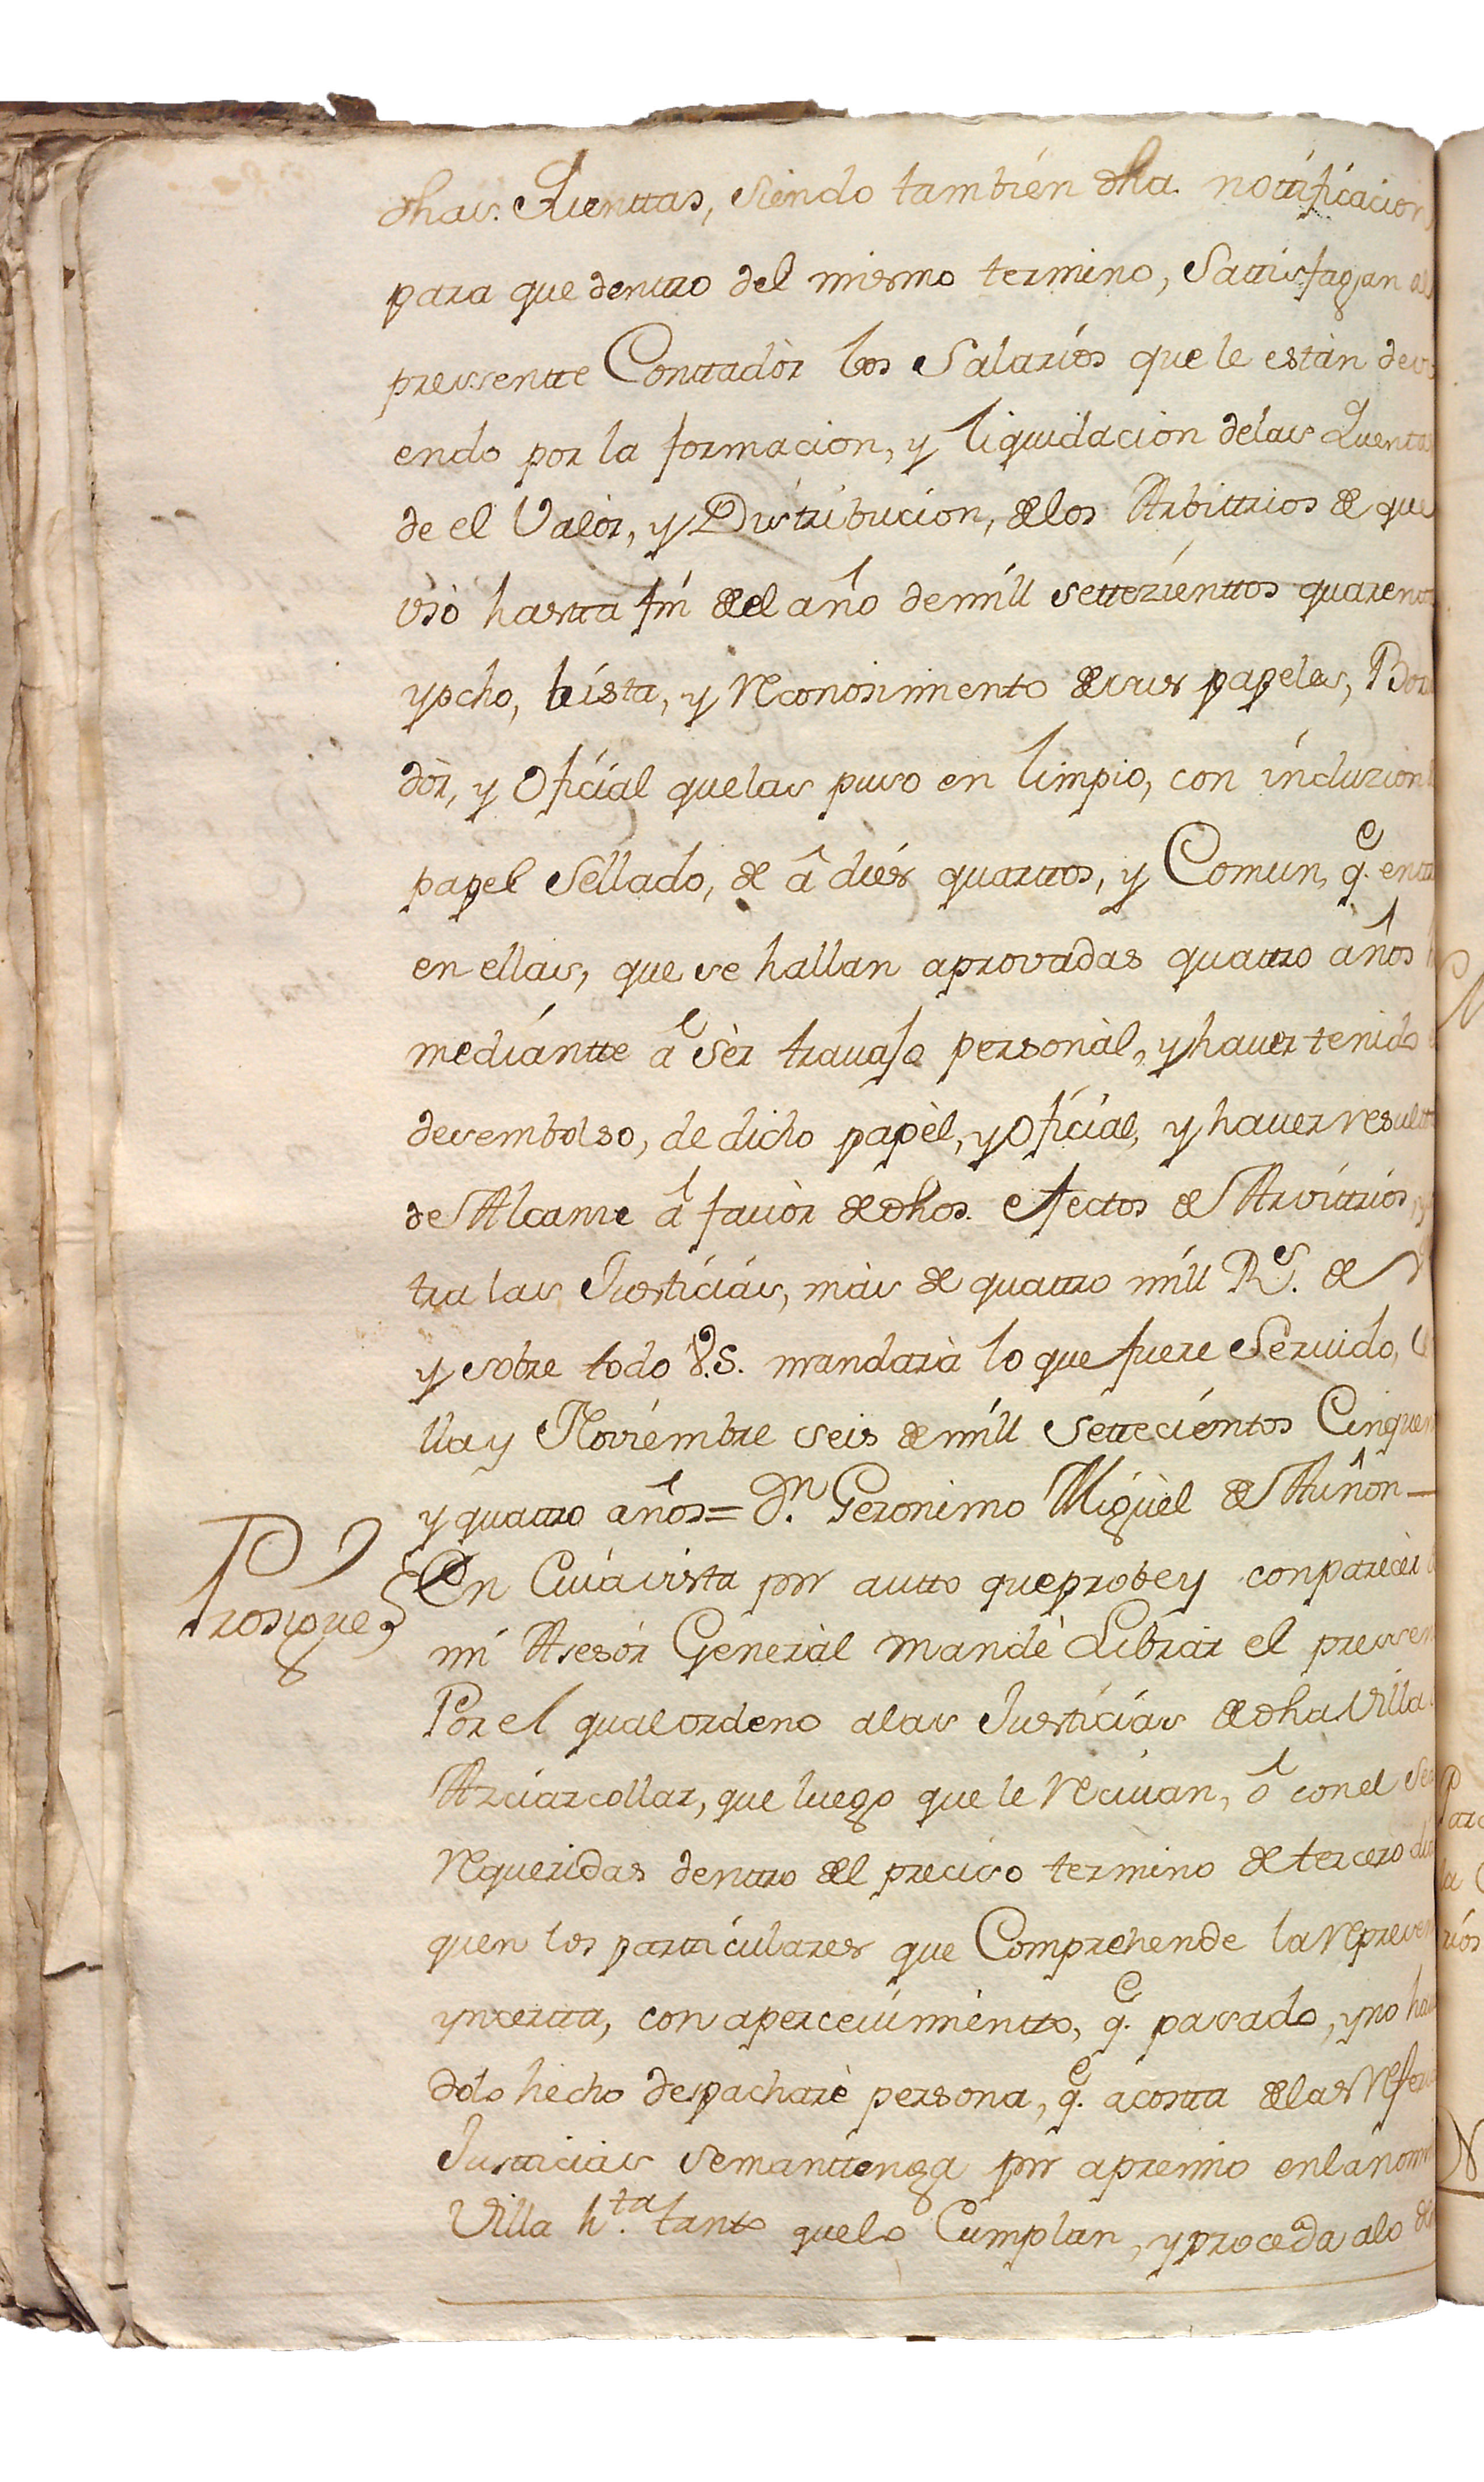 dhas. Quenttas, siendo también dha. nottificacion
para que denttro del mismo termino, Sattisfagan al
pressentte Conttadòr los Salarios que le estàn devi
endo por la formacion, y liquidacion delas Quentas
de el Valòr, y Distribucion, de los Arbittrios de que
usò hastta fin de el año demill settezienttos quarenta
yocho, bista, y Reconosimiento desus papeles, Borra
dòr, y Oficial quelas puso en limpio, con incluzion
papel Sellado, de â diez quarttos, y Comun, q.e entra
en ellas, que se hallan aprovadas quattro años
mediantte â sèr travajo personàl, y haver tenido
desembolso, de dicho papèl, y Oficial, y haver resulta
de Alcanze â favòr de dhos. efectos de Arvitrios,
tra las Justicias, màs de quattro mill R.s de V
y sobre todo V.S. mandarà lo que fuere Servido,
lla y Noviembre seis de mill Settecientos Cinquen
y quattro años = D.n Geronimo Miguèl de Auñon—
Prosigue
En Cuia vista por autto queprobey conparecèr
mi Asesòr Generàl mandè Librar el pressen
Por el qual ordeno alas Justicias de dha Villa
Arciarcollar, que luego que le Recivan, ô conel Sea
Requeridas denttro del preciso termino de tercero dia
quen los partticulares que Comprehende la Repreven
ynsertta, con apercevimientto, q.e pasado, y no havi
dolo hecho despacharè persona, q.e acostta delas Refer
Justticias semanttenga por apremio enlanomi
Villa h.ta tanto quelo Cumplan, y proceda alo de